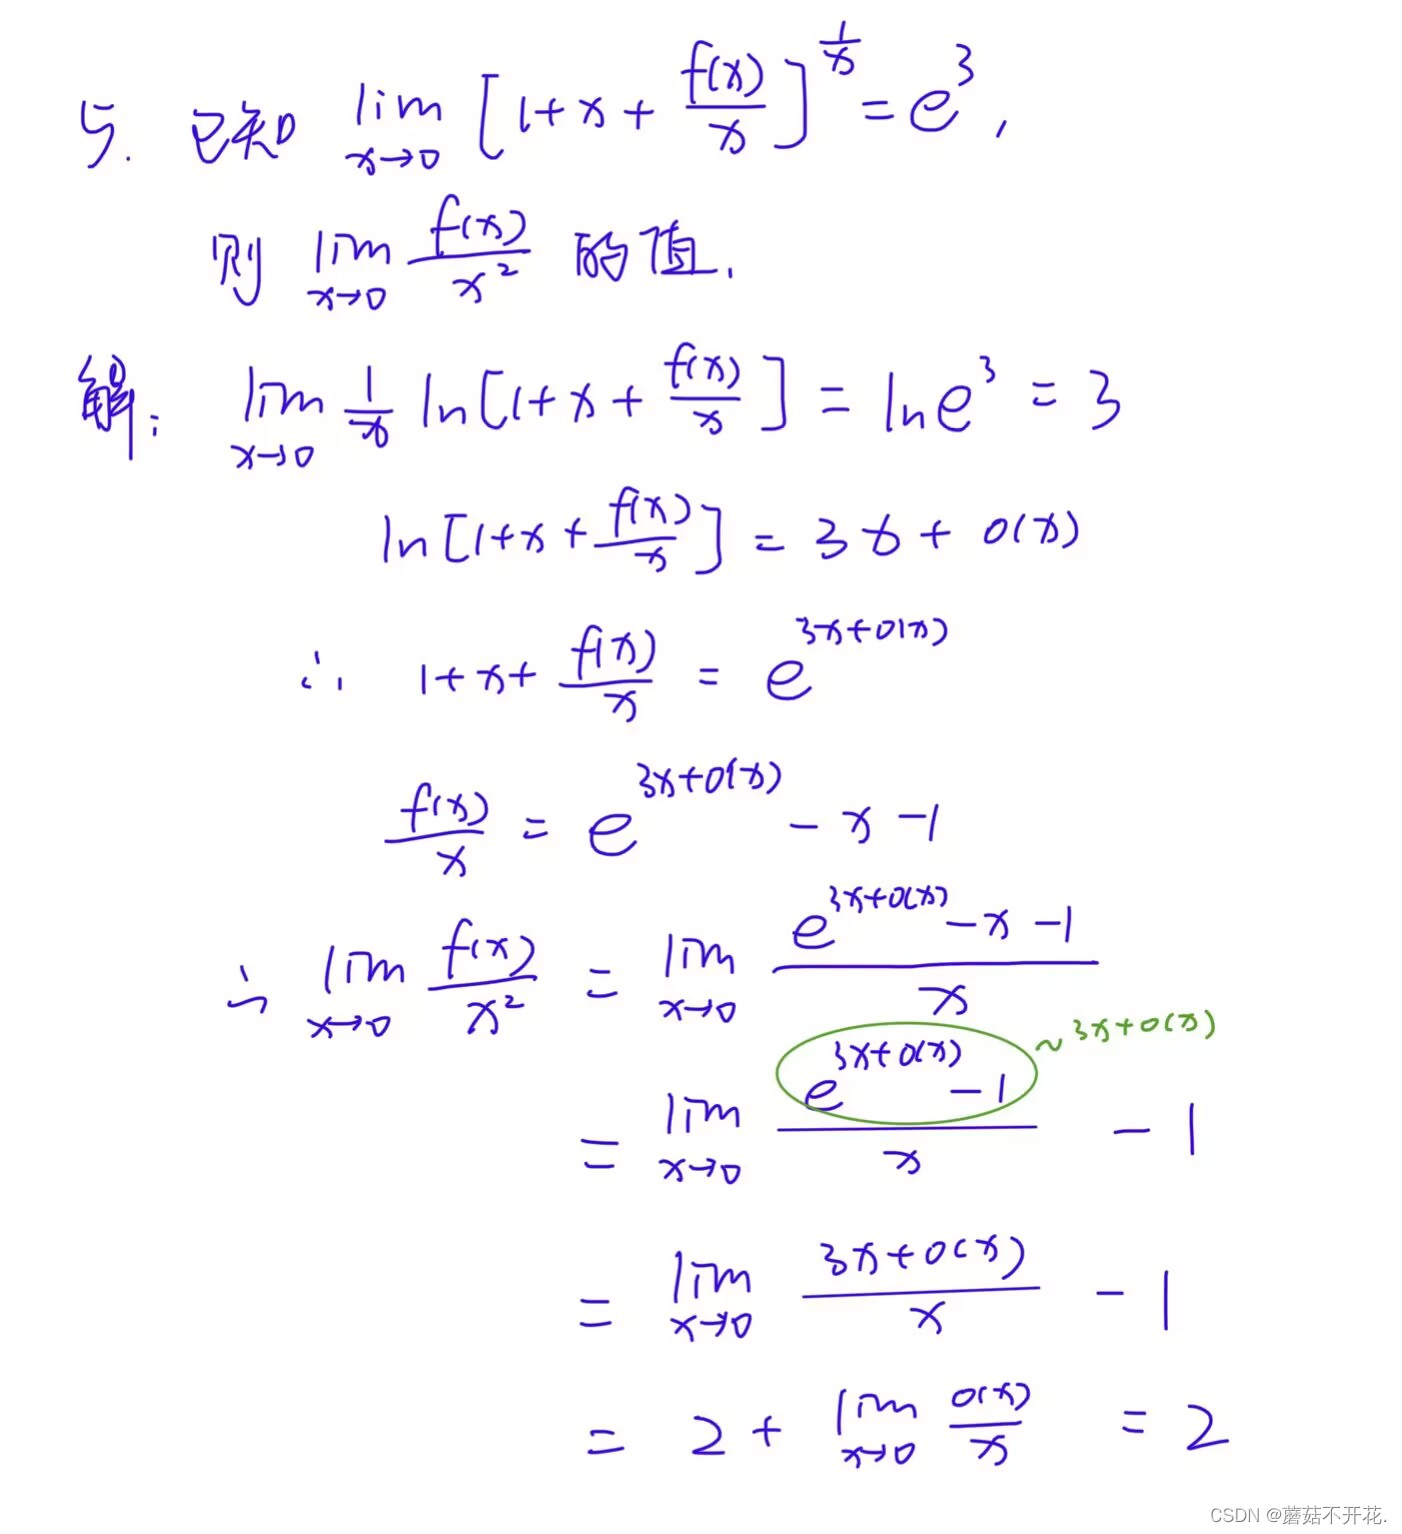 5. 已知 lim x→0 [1+x+ f(x)/x]^(1/x) = e^3,
则 lim x→0 f(x)/x² 的值.
解: lim x→0 1/x ln[1+x+ f(x)/x] = ln e^3 = 3
ln[1+x+ f(x)/x] = 3x+o(x)
∴ 1+x+ f(x)/x = e^(3x+o(x))
f(x)/x = e^(3x+o(x)) -x-1
∴ lim x→0 f(x)/x² = lim x→0 (e^(3x+o(x)) -x-1)/x
= lim x→0 (e^(3x+o(x)) -1)/x -1 ~3x+o(x)
= lim x→0 (3x+o(x))/x -1
= 2+ lim x→0 o(x)/x = 2
CSDN @蘑菇不开花.